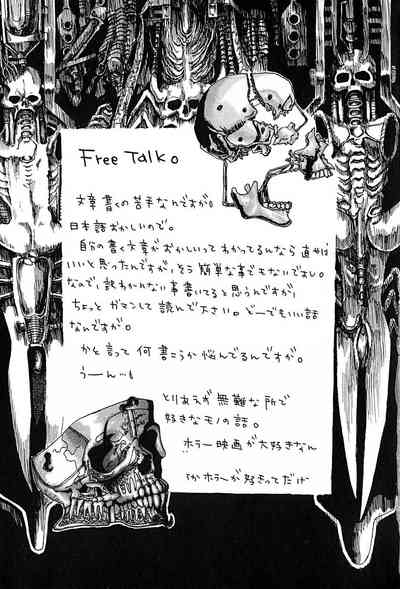 Free Talk。
文章書くの苦手なんですが。
日本語おかしいので。
自分の書く文章がおかしいってわかってるんなら直せば
いいと思ったんですが、そう簡単な事でもないですし。
なんで、訳わかんない事書いてると思うんですが、
ちょっとガマンして読んで下さい。どーでもいい話
なんですが。
かと言って何書こうか悩んでるんですが。
うーん…。
とりあえず無難な所で
好きなモノの話。
ホラー映画が大好きなん
ホラーが好きってだけ